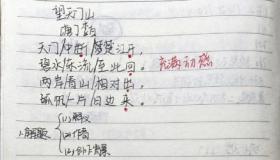 望天门山
唐 李白
天门/中断/楚江开,
碧水/东流/至此回。充满动感
两岸/青山/相对出,
孤帆/一片/日边来。
1.解题
(1)释义
(2)作者
(3)外卜背景